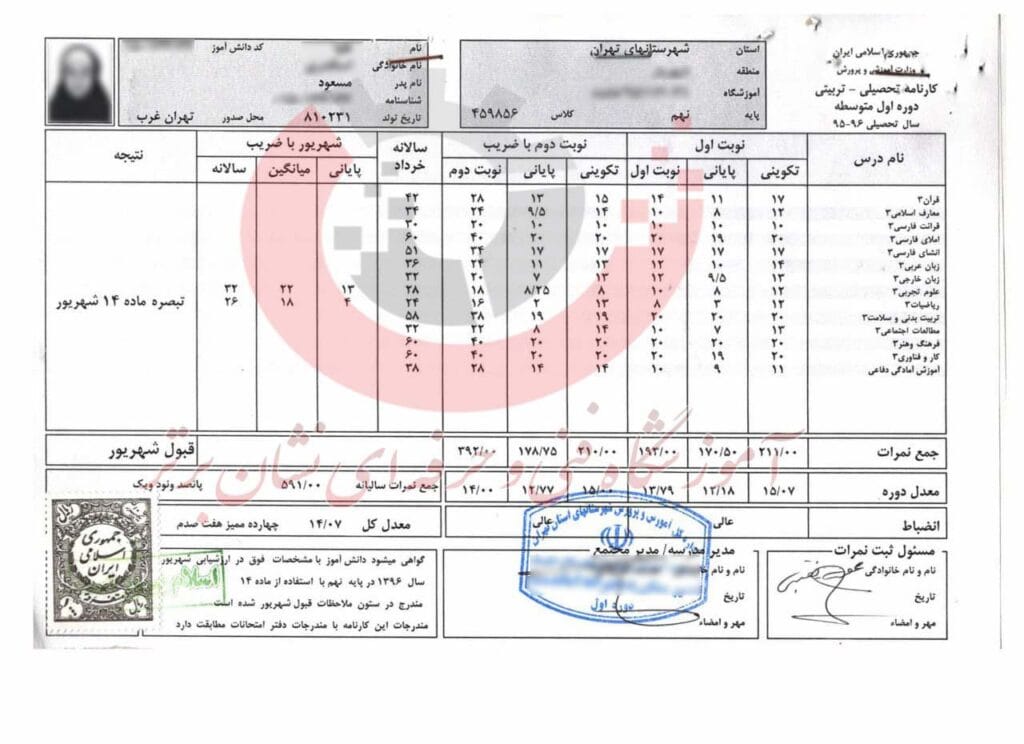 جمهوری اسلامی ایران
وزارت آموزش و پرورش
کارنامه تحصیلی - تربیتی
دوره اول متوسطه
سال تحصیلی ۹۶-۹۵
استان شهرستانهای تهران
منطقه
آموزشگاه
پایه نهم کلاس ۴۵۹۸۵۶
نام کد دانش آموز
نام خانوادگی
نام پدر مسعود
شناسنامه
تاریخ تولد ۸۱۰۲۳۱ محل صدور تهران غرب
نام درس نوبت اول نوبت دوم با ضریب سالانه خرداد شهریور با ضریب نتیجه
تکوینی پایانی نوبت اول تکوینی پایانی نوبت دوم پایانی میانگین سالانه
قرآن۳ ۱۷ ۱۱ ۱۴ ۱۵ ۱۳ ۲۸ ۴۲
معارف اسلامی۳ ۱۲ ۸ ۱۰ ۱۴ ۹/۵ ۲۴ ۳۴
قرائت فارسی۳ ۱۰ ۱۰ ۱۰ ۱۰ ۱۰ ۲۰ ۳۰
املای فارسی۳ ۲۰ ۱۹ ۲۰ ۲۰ ۲۰ ۴۰ ۶۰
انشای فارسی۳ ۱۷ ۱۷ ۱۷ ۱۷ ۱۷ ۳۴ ۵۱
زبان عربی۳ ۱۴ ۱۰ ۱۲ ۱۳ ۱۱ ۲۴ ۳۶
زبان خارجی۳ ۱۳ ۹/۵ ۱۲ ۱۳ ۷ ۲۰ ۳۲
علوم تجربی۳ ۱۲ ۸ ۱۰ ۸ ۸/۲۵ ۱۸ ۲۸ ۱۳ ۲۲ ۳۲
ریاضیات۳ ۱۲ ۳ ۸ ۱۳ ۲ ۱۶ ۲۴ ۴ ۱۸ ۲۶
تبصره ماده ۱۴ شهریور
تربیت بدنی و سلامت۳ ۲۰ ۲۰ ۲۰ ۱۹ ۱۹ ۳۸ ۵۸
مطالعات اجتماعی۳ ۱۳ ۷ ۱۰ ۱۴ ۸ ۲۲ ۳۲
فرهنگ وهنر۳ ۲۰ ۲۰ ۲۰ ۲۰ ۲۰ ۴۰ ۶۰
کار و فناوری۳ ۲۰ ۱۹ ۲۰ ۲۰ ۲۰ ۴۰ ۶۰
آموزش آمادگی دفاعی ۱۱ ۹ ۱۰ ۱۴ ۱۴ ۲۸ ۳۸
جمع نمرات ۲۱۱/۰۰ ۱۷۰/۵۰ ۱۹۳/۰۰ ۲۱۰/۰۰ ۱۷۸/۷۵ ۳۹۲/۰۰ قبول شهریور
معدل دوره ۱۵/۰۷ ۱۲/۱۸ ۱۳/۷۹ ۱۵/۰۰ ۱۲/۷۷ ۱۴/۰۰ جمع نمرات سالیانه ۵۹۱/۰۰ پانصد ونود ویک
انضباط عالی عالی معدل کل ۱۴/۰۷ چهارده ممیز هفت صدم
آموزشگاه فنی و حرفه ای نشان برتر
مسئول ثبت نمرات
نام و نام خانوادگی
تاریخ
مهر و امضاء
مدیر مدرسه/ مدیر مجتمع
نام و نام
تاریخ
مهر و امضاء
اداره کل آموزش و پرورش شهرستانهای استان تهران
دوره اول
گواهی میشود دانش آموز با مشخصات فوق در ارزشیابی شهریور
سال ۱۳۹۶ در پایه نهم با استفاده از ماده ۱۴
مندرج در ستون ملاحظات قبول شهریور شده است
مندرجات این کارنامه با مندرجات دفتر امتحانات مطابقت دارد
جمهوری
اسلامی
ایران